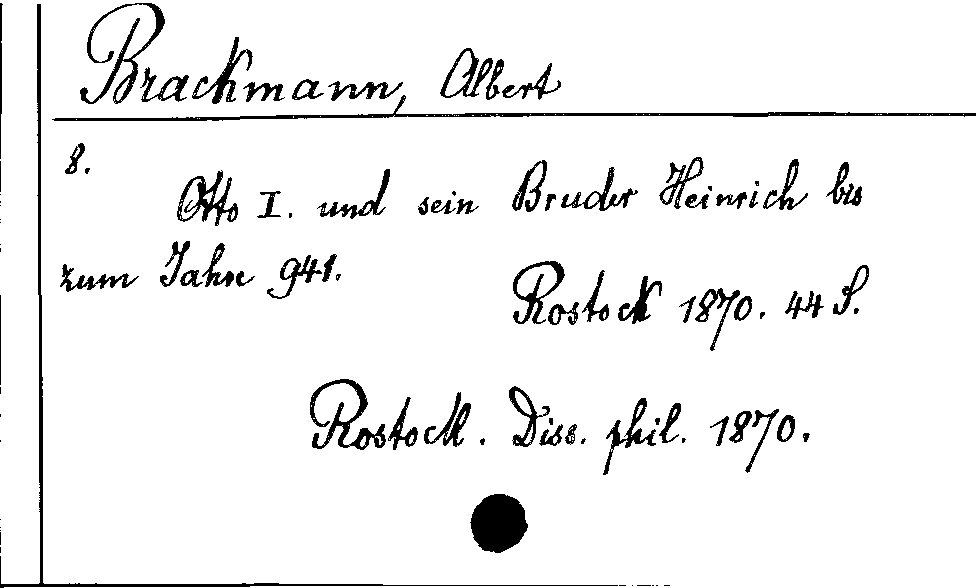 Brackmann, Albert
8.
Otto I. und sein Bruder Heinrich bis
zum Jahre 941.
Rostock 1870. 44 S.
Rostock. Diss. phil. 1870.